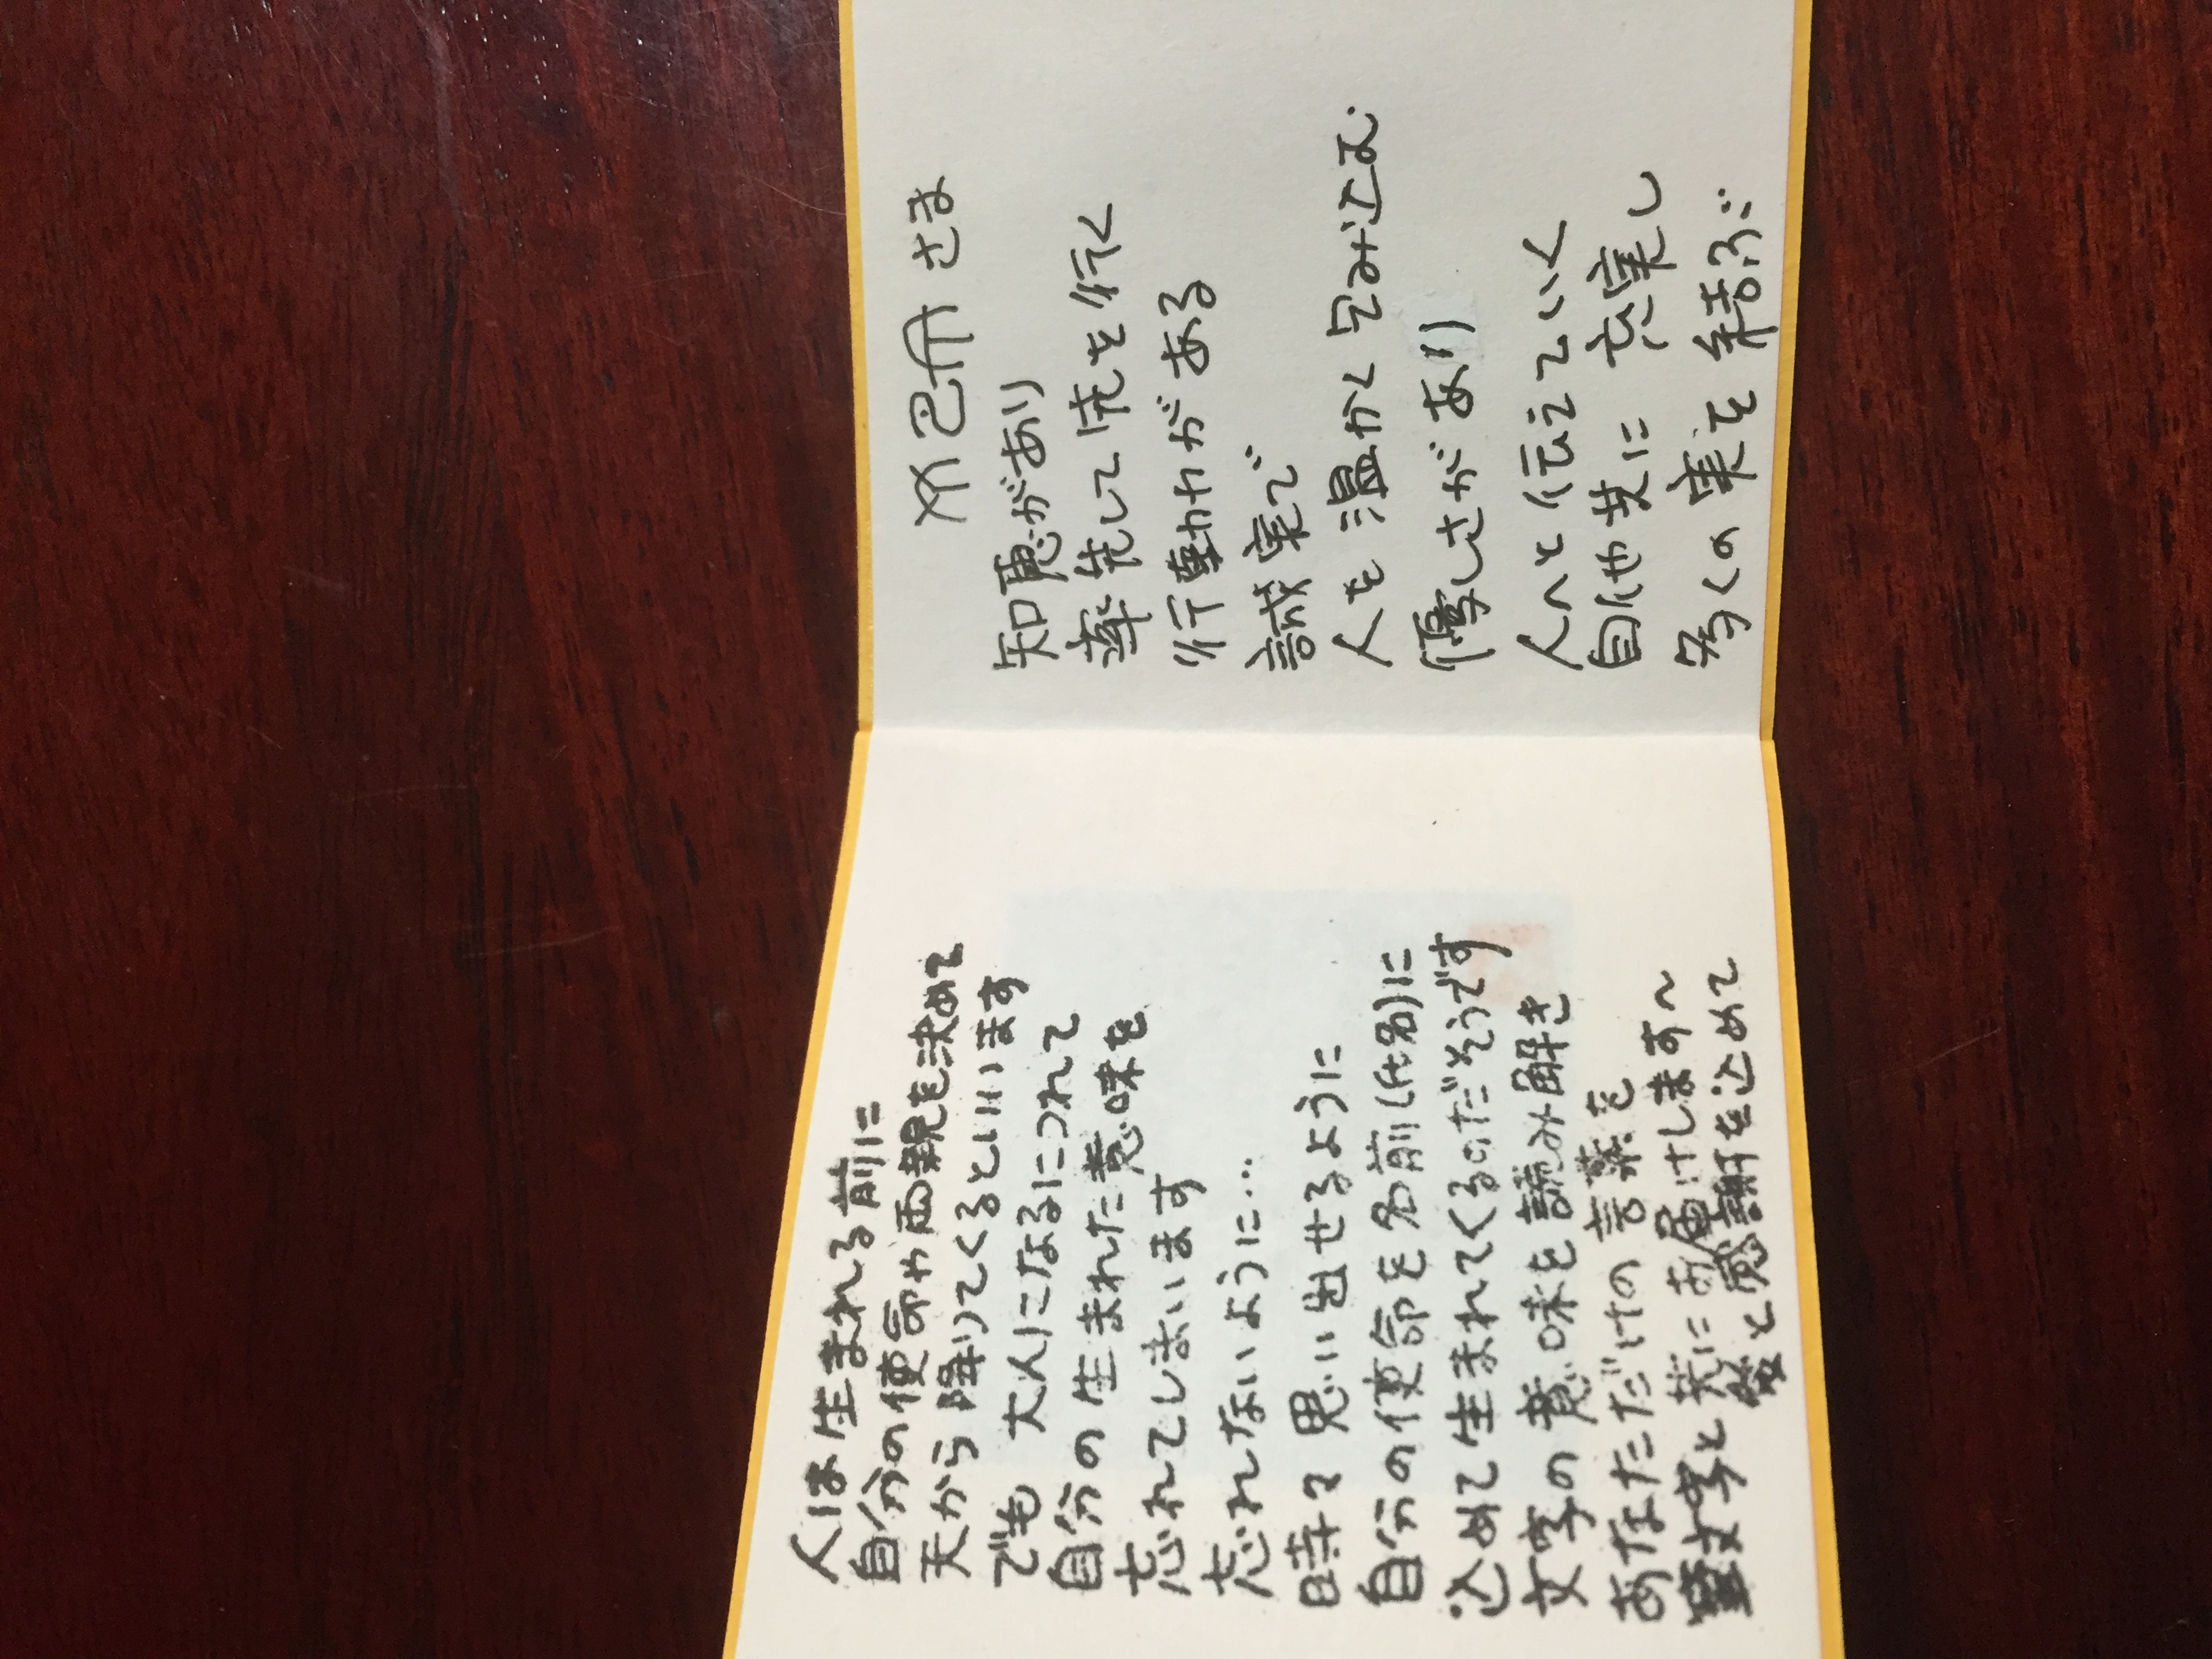 人は生まれる前に
自分の使命や両親を決めて
天から降りてくるといいます
でも 大人になるにつれて
自分の生まれた意味を
忘れてしまいます
忘れないように…
時々思い出せるように
自分の使命を名前(氏名)に
込めて生まれてくるのだそうです
文字の意味を読み解き
あなただけの言葉を
筆文字と共にお届けします〜
愛と感謝を込めて
さま
知恵があり
率先して を行く
行動力がある
誠実で
人を温かく包み込む
優しさがあり
人へと伝えていく
自他共に充実し
多くの実を結ぶ…